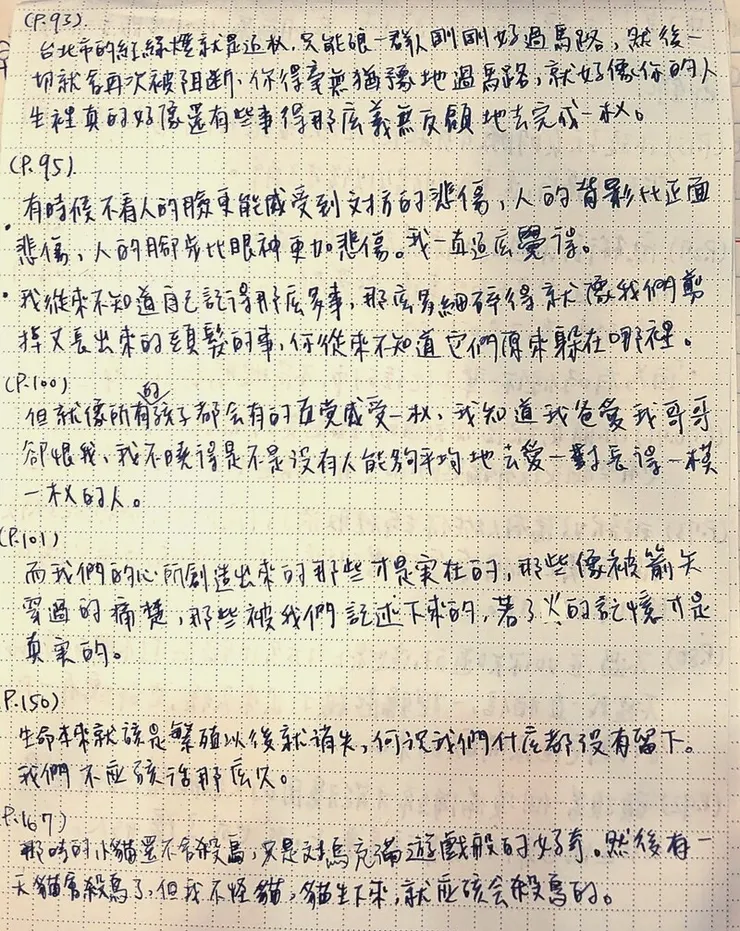 (P.93)
台北市的紅綠燈就是这枚,只能跟一群人剛剛好過馬路,然後一
切就會再次被阻斷,你得毫無猶豫地過馬路,就好像你的人
生裡真的好像還有些事得那麼義無反顧地去完成一枚。
(P.95)
有時候不看人的臉更能感受到对方的悲傷,人的背影比正面
悲傷,人的腳步比眼神更加悲傷。我一直这麼覺得。
• 我從來不知道自己記得那麼多事,那麼多細碎得就像我們剪
掉又長出來的頭髮的事,你從來不知道它們原來躲在哪裡。
(P.100)
但就像所有的孩子都会有的直覚感受一枚,我知道我爸愛我哥哥
卻恨我,我不曉得是不是沒有人能夠平均地去愛一對長得一模
一枚的人。
(P.101)
而我們的心所創造出來的那些才是实在的,那些像被箭矢
穿過的痛楚,那些被我們記述下來的,著了火的記憶才是
真实的。
(P.150)
生命本來就該是繁殖以後就消失,何况我們什麼都沒有留下。
我們不应該活那麼久。
(P.167)
那時的小貓還不會殺鳥,只是对鳥充滿遊戲般的好奇。然後有一
天貓會殺鳥了,但我不怪貓,貓生下來,就应該会殺鳥的。